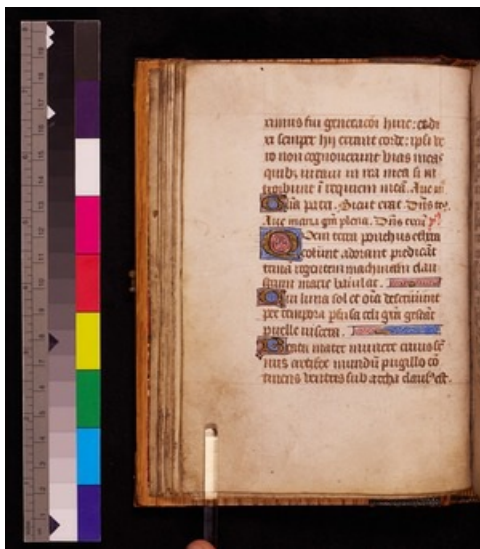 ximus fui generacõi huic: et di
xi semper hij errant corde: ipsi ve
ro non cognoverunt vias meas
quibꝰ iuravi in ira mea si in
troibunt ĩ requiem meã. Ave mª
Gl'ia patri. Sicut erat. Dñs tec̃.
Ave maria grã plena. Dñs tecũ
Quem terra ponthus ethra
colunt adorant predicãt
trinã regentem machinam clau
strum marie baiulat.
Cui luna sol et oĩa deserviunt
per tempora pfusa celi grã gestãt
puelle viscera.
Beata mater munere cuius sũ
nus artifex mundũ pugillo cõ
tinens ventris sub archa clausꝰ est.